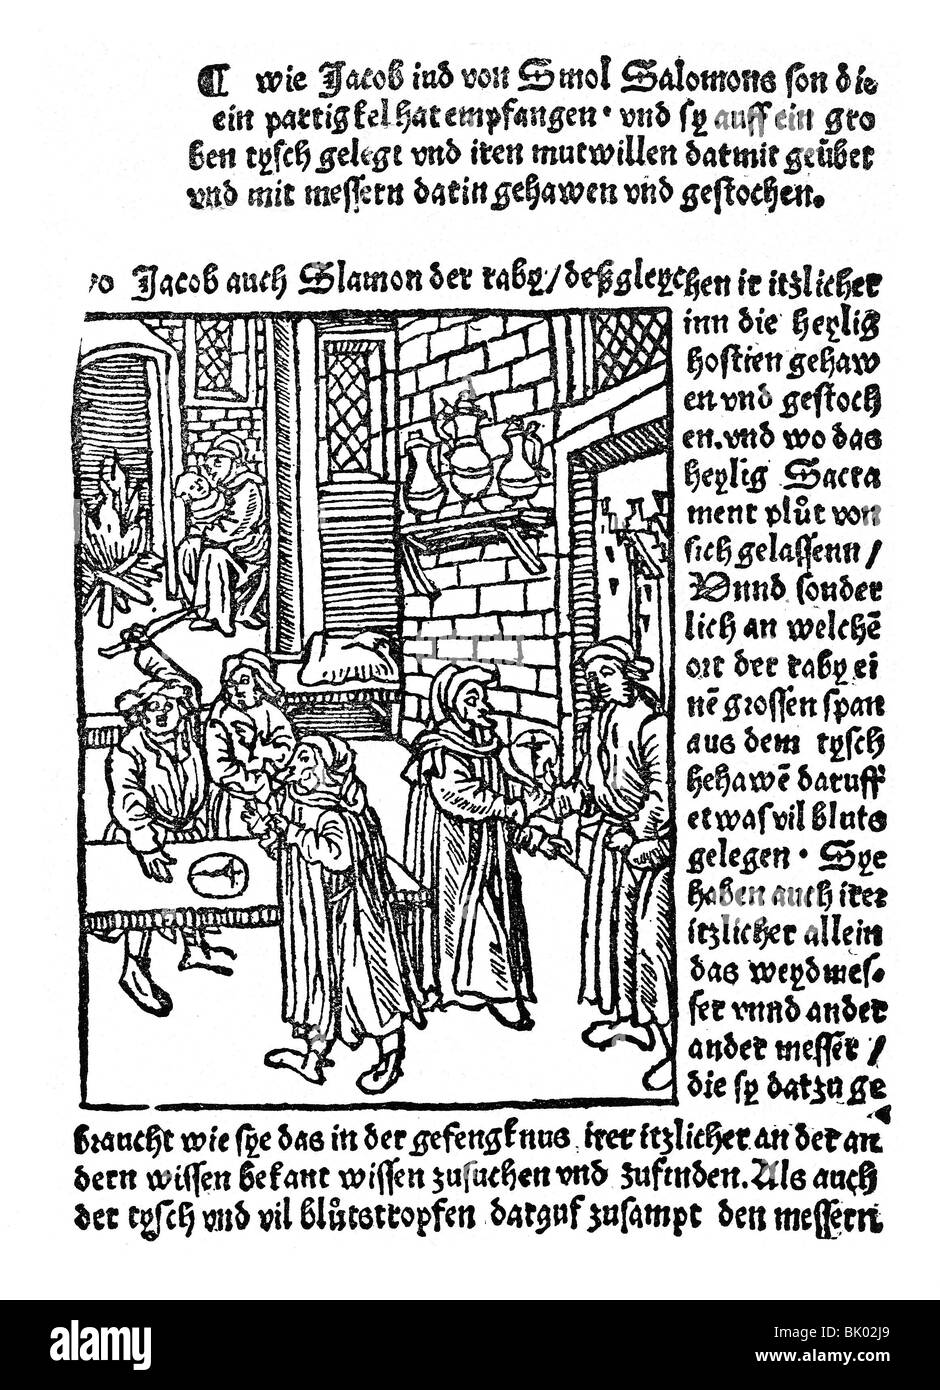 ¶ wie Jacob iud von Smol Salomons son die
ein partigkel hat empfangen · vnd sy auff ein gro
ben tysch gelegt vnd iren mutwillen darmit geůbet
vnd mit messern darin gehawen vnd gestochen.
o Jacob auch Slamon der raby / deßgleychen ir itzlicher
inn die heylig
hostien gehaw
en vnd gestoch
en. vnd wo das
heylig Sacra
ment plůt von
sich gelassenn /
Vnnd sonder
lich an welchē
ort der raby ei
nē grossen span
aus dem tysch
hehawē daruff
etwas vil bluts
gelegen · Sye
haben auch irer
itzlicher allein
das weydmes-
ser vnnd ander
ander messer /
die sy datzu ge
braucht wie sye das in der gefengknus irer itzlicher an der an
dern wissen bekant wissen zusuchen vnd zufinden. Als auch
der tysch vnd vil blůtstropfen daruf zusampt den messern
alamy
Image ID: BK02J9
www.alamy.com